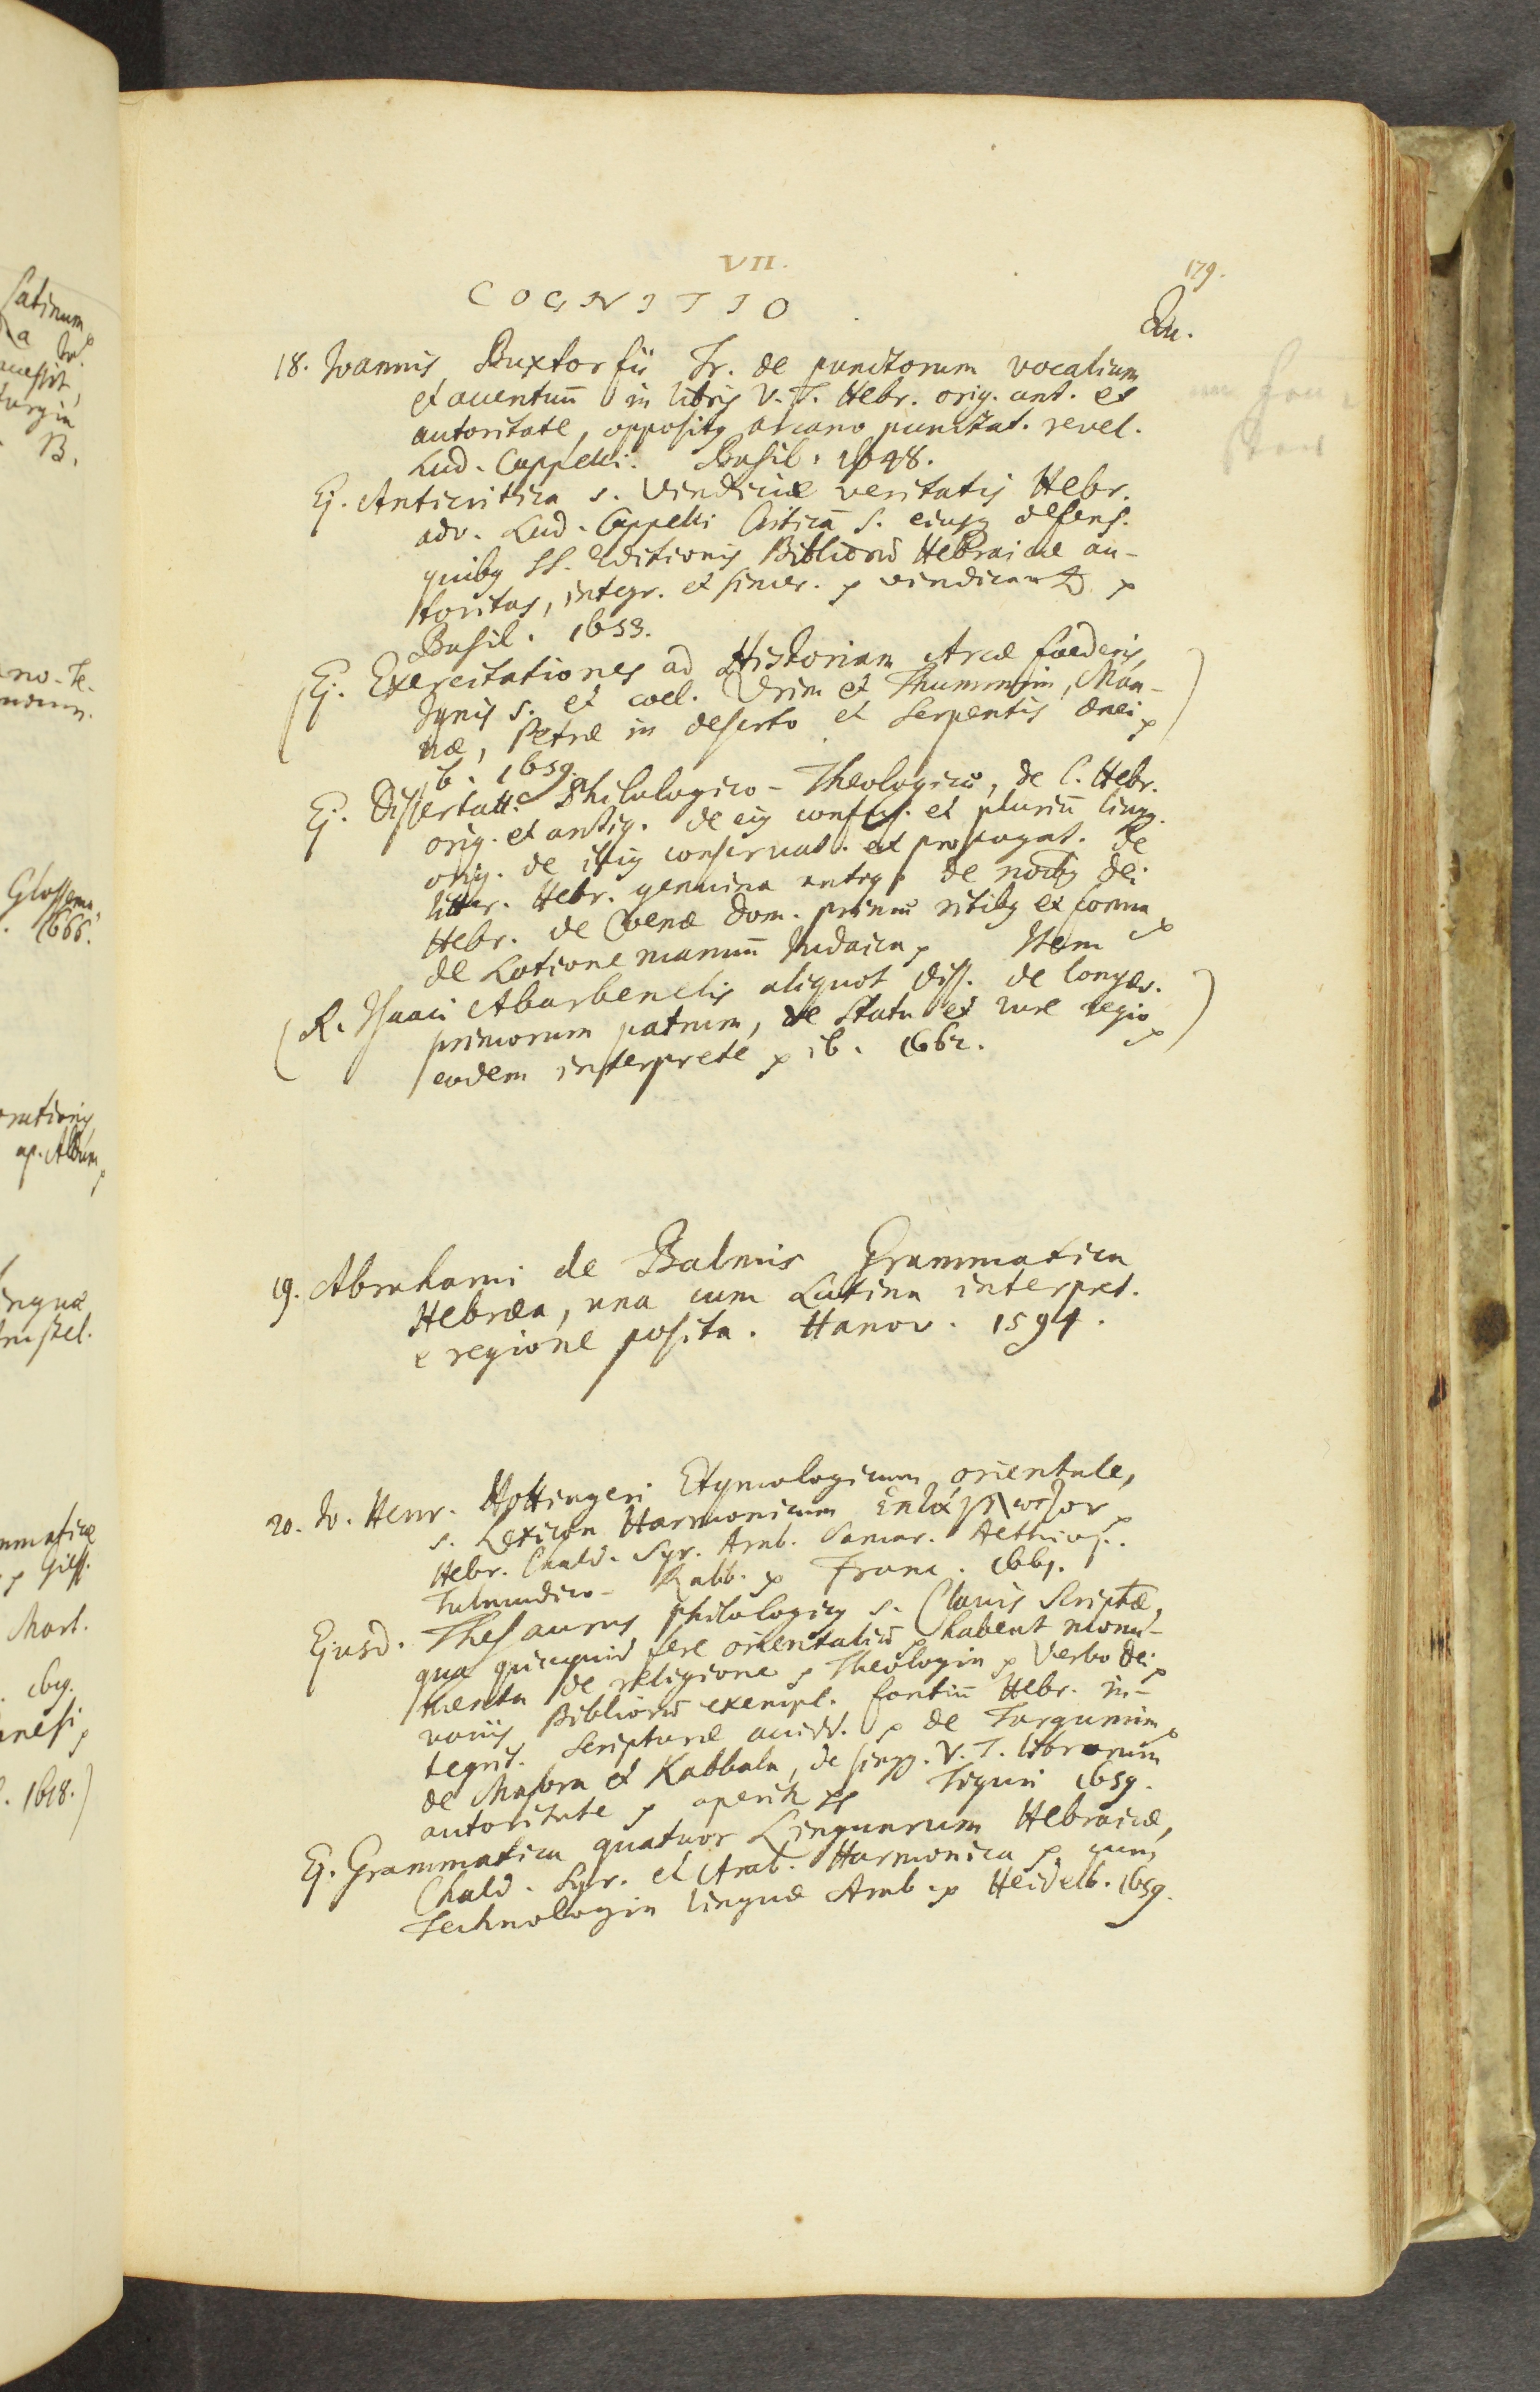 VII.
179.
COGNITIO
Qu.
18. Joannis Buxtorfii Tr. de punctorum vocalium
et accentuū in libris V. T. Hebr. orig. ant. et
autoritate, opposity arcano punctat. revel.
Lud. Cappelli. Basil. 1648.
Ej. Anticritica s. vindiciæ veritatis Hebr.
adv. Lud. Cappelli Criticā s. eiusq defens.
quiby SS. Editionis Bibliorū Hebraicæ au-
toritas, integr. et sincer. p vindicant p
Basil. 1653.
(Ej. Exercitationes ad Historiam Arcæ foederis,
Ignis s. et coel. Urim et Thummim, Man-
næ, Petræ in deserto et Serpentis ænei p)
ib. 1659.
Ej. Dissertatt. Philologico-Theologicæ, de l. Hebr.
orig. et antiq. de eiq confus. et pluriū lingg.
orig. de istiq conservat. et propagat. De
litter. Hebr. genuina antiq. de noīby dei
Hebr. de Coenæ Dom. primæ ritiby et forma p
de Lotione manuū Judaica p Item
(R. Isaaci Abarbenelis aliquot diss. de longæv.
primorum patrum, de Statu et iure regio p)
eodem interprete p ib. 1662.
19. Abrahami de Balmis Grammatica
Hebræa, una cum Latina interpret.
e regione posita. Hanov. 1594.
20. Jo. Henr. Hottingeri Etymologicum orientale,
s. Lexicon Harmonicum Επτάγλωττον p
Hebr. Chald. Syr. Arab. Samar. Aethiop.
Talmudico-Rabb. p Franc. 1661.
Ejusd. Thesaurus philologicy s. Clavis Scripturæ,
qua quicquid fere orientaliū p habent monu-
menta de religione p Theologia p Verbo Dei p
variis Bibliorū exempl. fontiū Hebr. in-
tegrit. Scripturæ accidd. p de Targumim p
de Masora et Kabbala, de singg. V. T. librorum
autoritate p aperit Tiguri 1659.
Ej. Grammatica quatuor Linguarum Hebraicæ,
Chald. Syr. et Arab. Harmonica p cum
Technologia linguæ Arab. p Heidelb. 1659.
Latinum
B.
Glossema
1666.
ap. Aldum
linguæ
Amstel.
Giss.
Mart.
1618.)